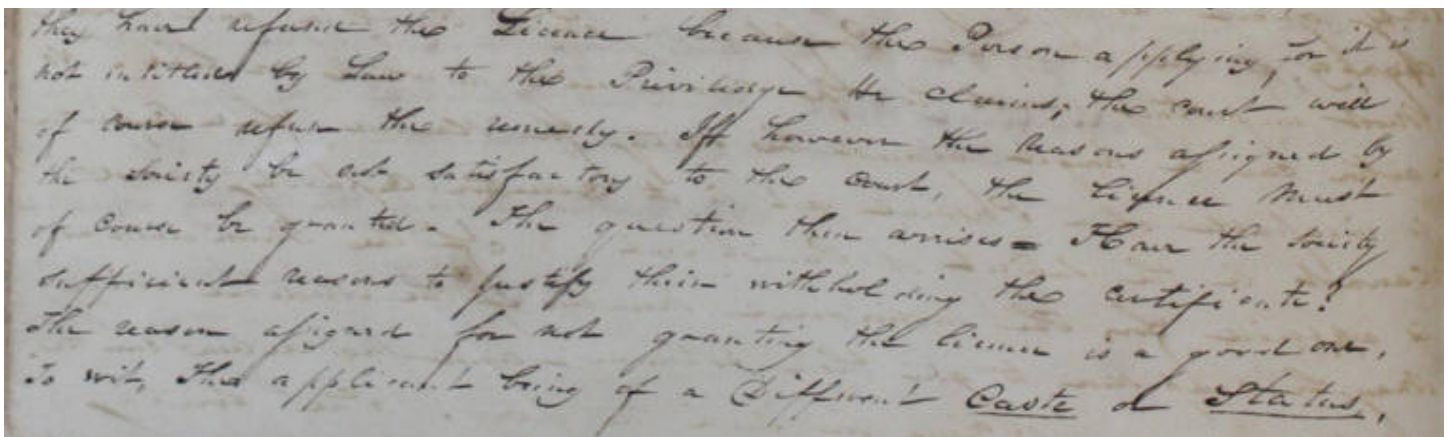 they have refused the Licence because the Person applying for it is
not intitled by Law to the Priviledge He claims, the court will
of course refuse the remedy. Iff however the reasons assigned by
the Society be not satisfactory to the court, the licence must
of course be granted. The question then arrises = Have the Society
sufficient reasons to justify their withholding the certificate?
The reason assigned for not granting the licence is a good one,
To wit, The applicant being of a Different Caste or Status,